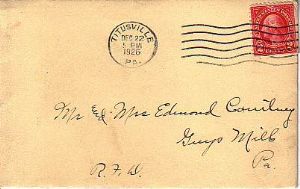 TITUSVILLE
DEC 22
5 PM
1926
PA.
Mr & Mrs Edmond Courtney
Guys Mills
Pa.
R.F.D.